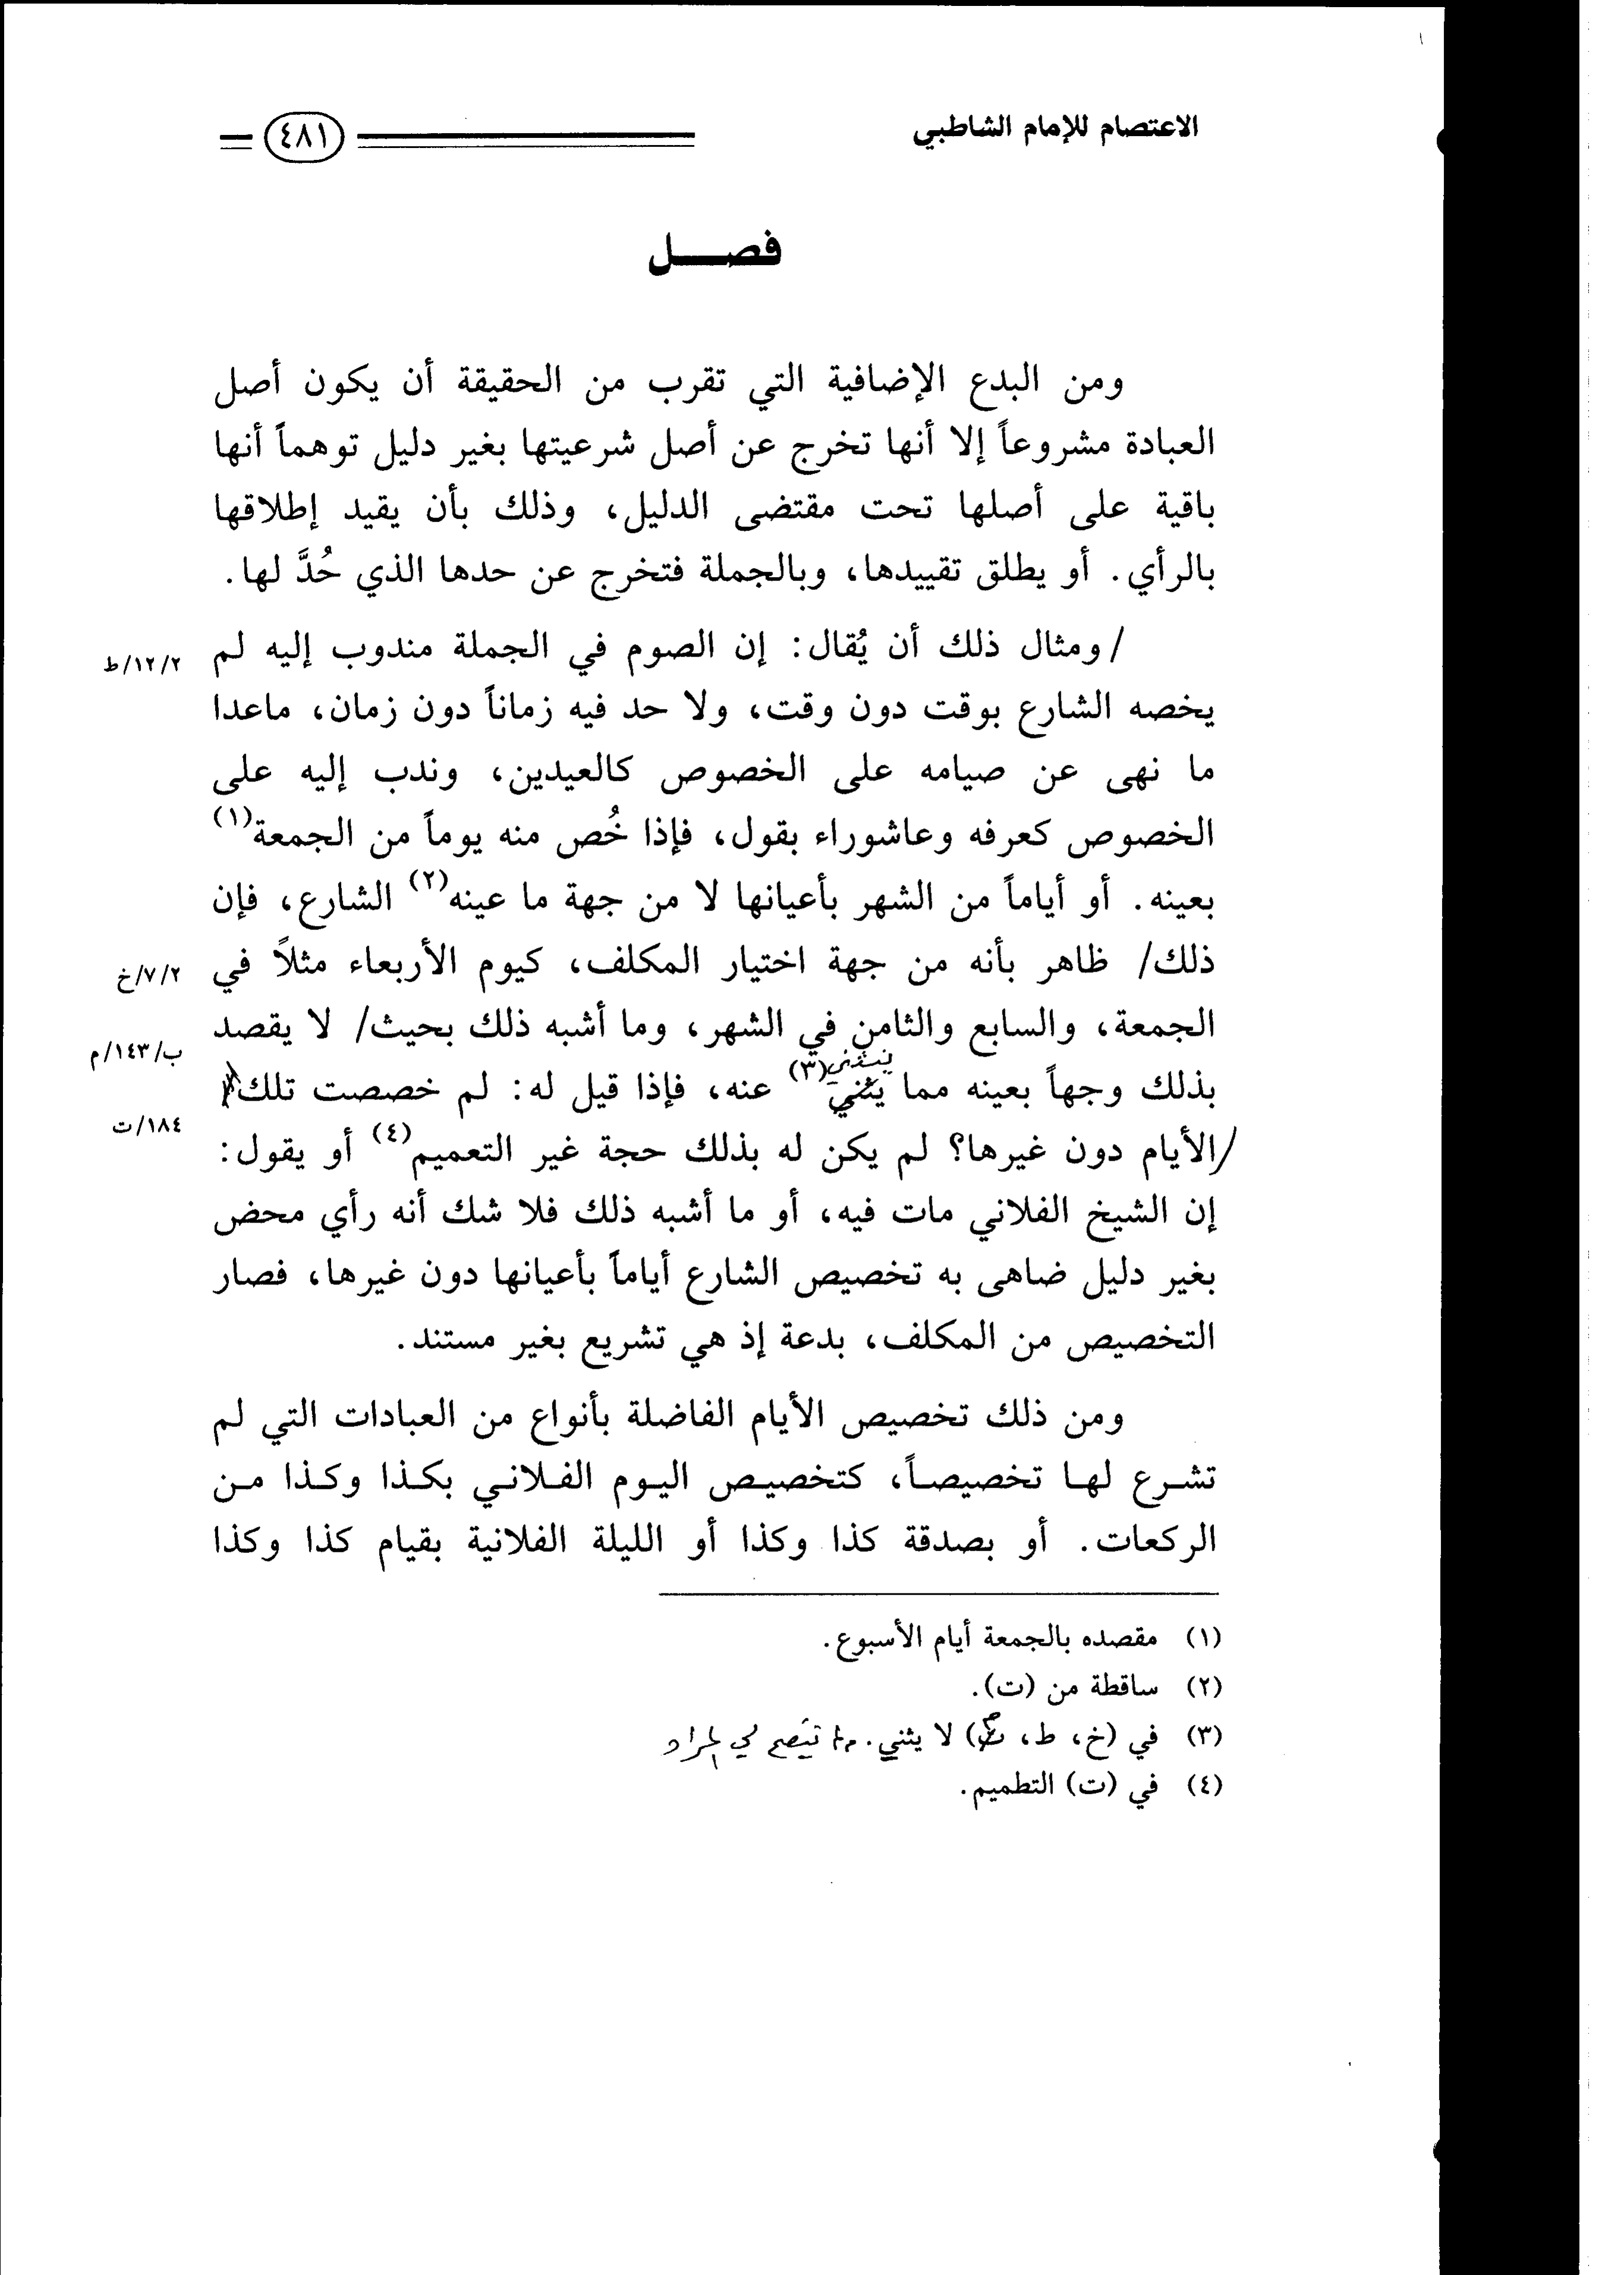 الاعتصام للإمام الشاطبي
٤٨١
فصـــل
ومن البدع الإضافية التي تقرب من الحقيقة أن يكون أصل
العبادة مشروعاً إلا أنها تخرج عن أصل شرعيتها بغير دليل توهماً أنها
باقية على أصلها تحت مقتضى الدليل، وذلك بأن يقيد إطلاقها
بالرأي. أو يطلق تقييدها، وبالجملة فتخرج عن حدها الذي حُدَّ لها.
/ ومثال ذلك أن يُقال: إن الصوم في الجملة مندوب إليه لم
٢/١٢/ط
يخصه الشارع بوقت دون وقت، ولا حد فيه زماناً دون زمان، ماعدا
ما نهى عن صيامه على الخصوص كالعيدين، وندب إليه على
الخصوص كعرفه وعاشوراء بقول، فإذا خُص منه يوماً من الجمعة(١)
بعينه. أو أياماً من الشهر بأعيانها لا من جهة ما عينه(٢) الشارع، فإن
ذلك/ ظاهر بأنه من جهة اختيار المكلف، كيوم الأربعاء مثلاً في
٢/٧/خ
الجمعة، والسابع والثامن في الشهر، وما أشبه ذلك بحيث/ لا يقصد
ب/١٤٣/م
بذلك وجهاً بعينه مما يثني(٣) عنه، فإذا قيل له: لم خصصت تلك
١٨٤/ت
/الأيام دون غيرها؟ لم يكن له بذلك حجة غير التعميم(٤) أو يقول:
إن الشيخ الفلاني مات فيه، أو ما أشبه ذلك فلا شك أنه رأي محض
بغير دليل ضاهى به تخصيص الشارع أياماً بأعيانها دون غيرها، فصار
التخصيص من المكلف، بدعة إذ هي تشريع بغير مستند.
ومن ذلك تخصيص الأيام الفاضلة بأنواع من العبادات التي لم
تشرع لها تخصيصاً، كتخصيص اليوم الفلاني بكذا وكذا من
الركعات. أو بصدقة كذا وكذا أو الليلة الفلانية بقيام كذا وكذا
(١) مقصده بالجمعة أيام الأسبوع.
(٢) ساقطة من (ت).
(٣) في (خ، ط، ت) لا يثني. لي المراد
(٤) في (ت) التطميم.